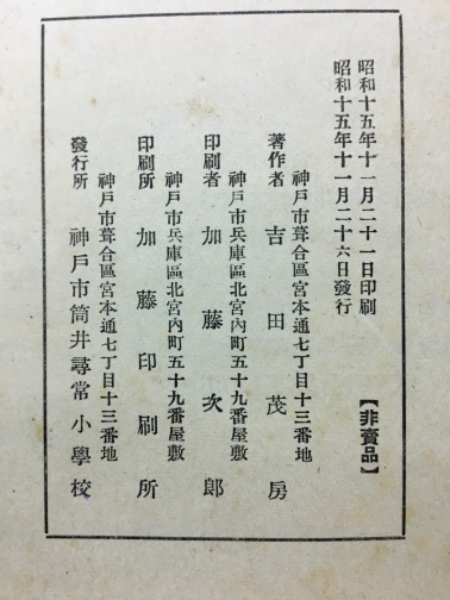 昭和十五年十一月二十一日印刷
昭和十五年十一月二十六日發行
【非賣品】
神戸市葺合區宮本通七丁目十三番地
著作者 吉田茂房
神戸市兵庫區北宮內町五十九番屋敷
印刷者 加藤次郎
神戸市兵庫區北宮內町五十九番屋敷
印刷所 加藤印刷所
神戸市葺合區宮本通七丁目十三番地
發行所 神戸市筒井尋常小學校